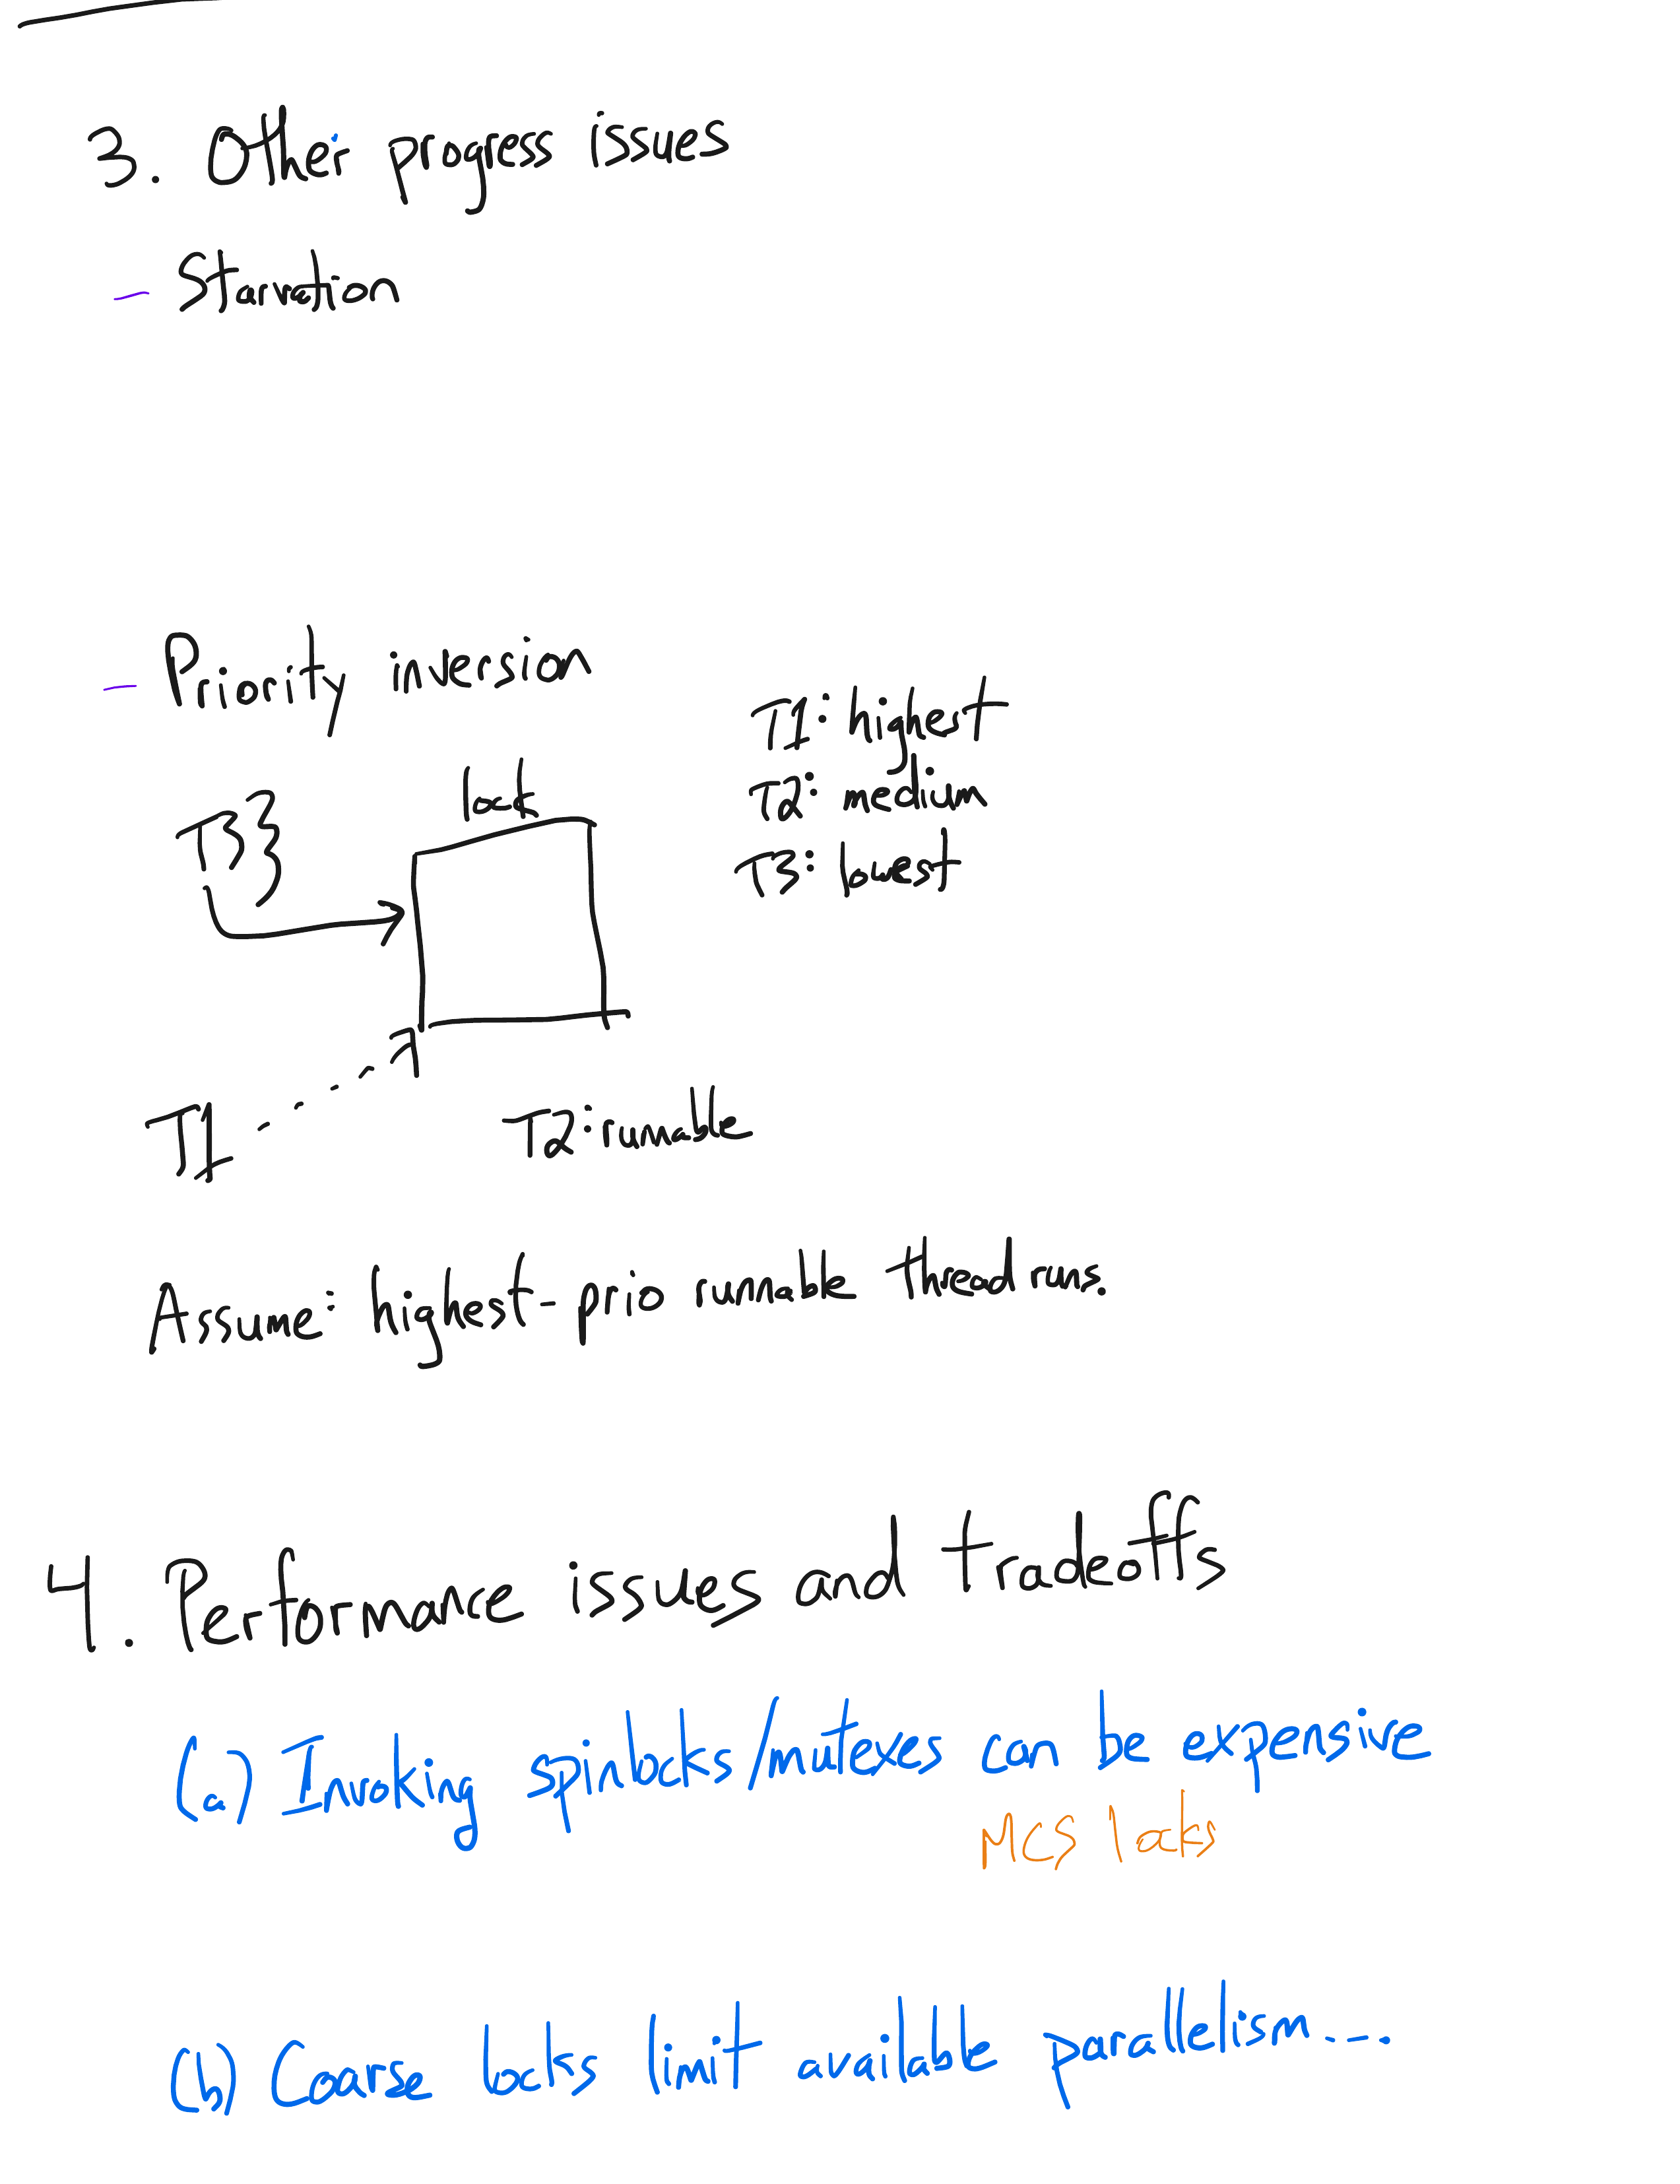 3. Other progress issues
- Starvation
- Priority inversion
T1: highest
T2: medium
T3: lowest
lock
T3}
T1
T2: runnable
Assume: highest-prio runnable thread runs.
4. Performance issues and tradeoffs
(a) Invoking spinlocks/mutexes can be expensive
MCS locks
(b) Coarse locks limit available parallelism....